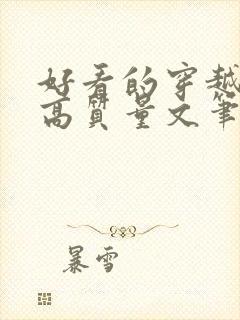 好看的穿越
高质量文笔
暴雪